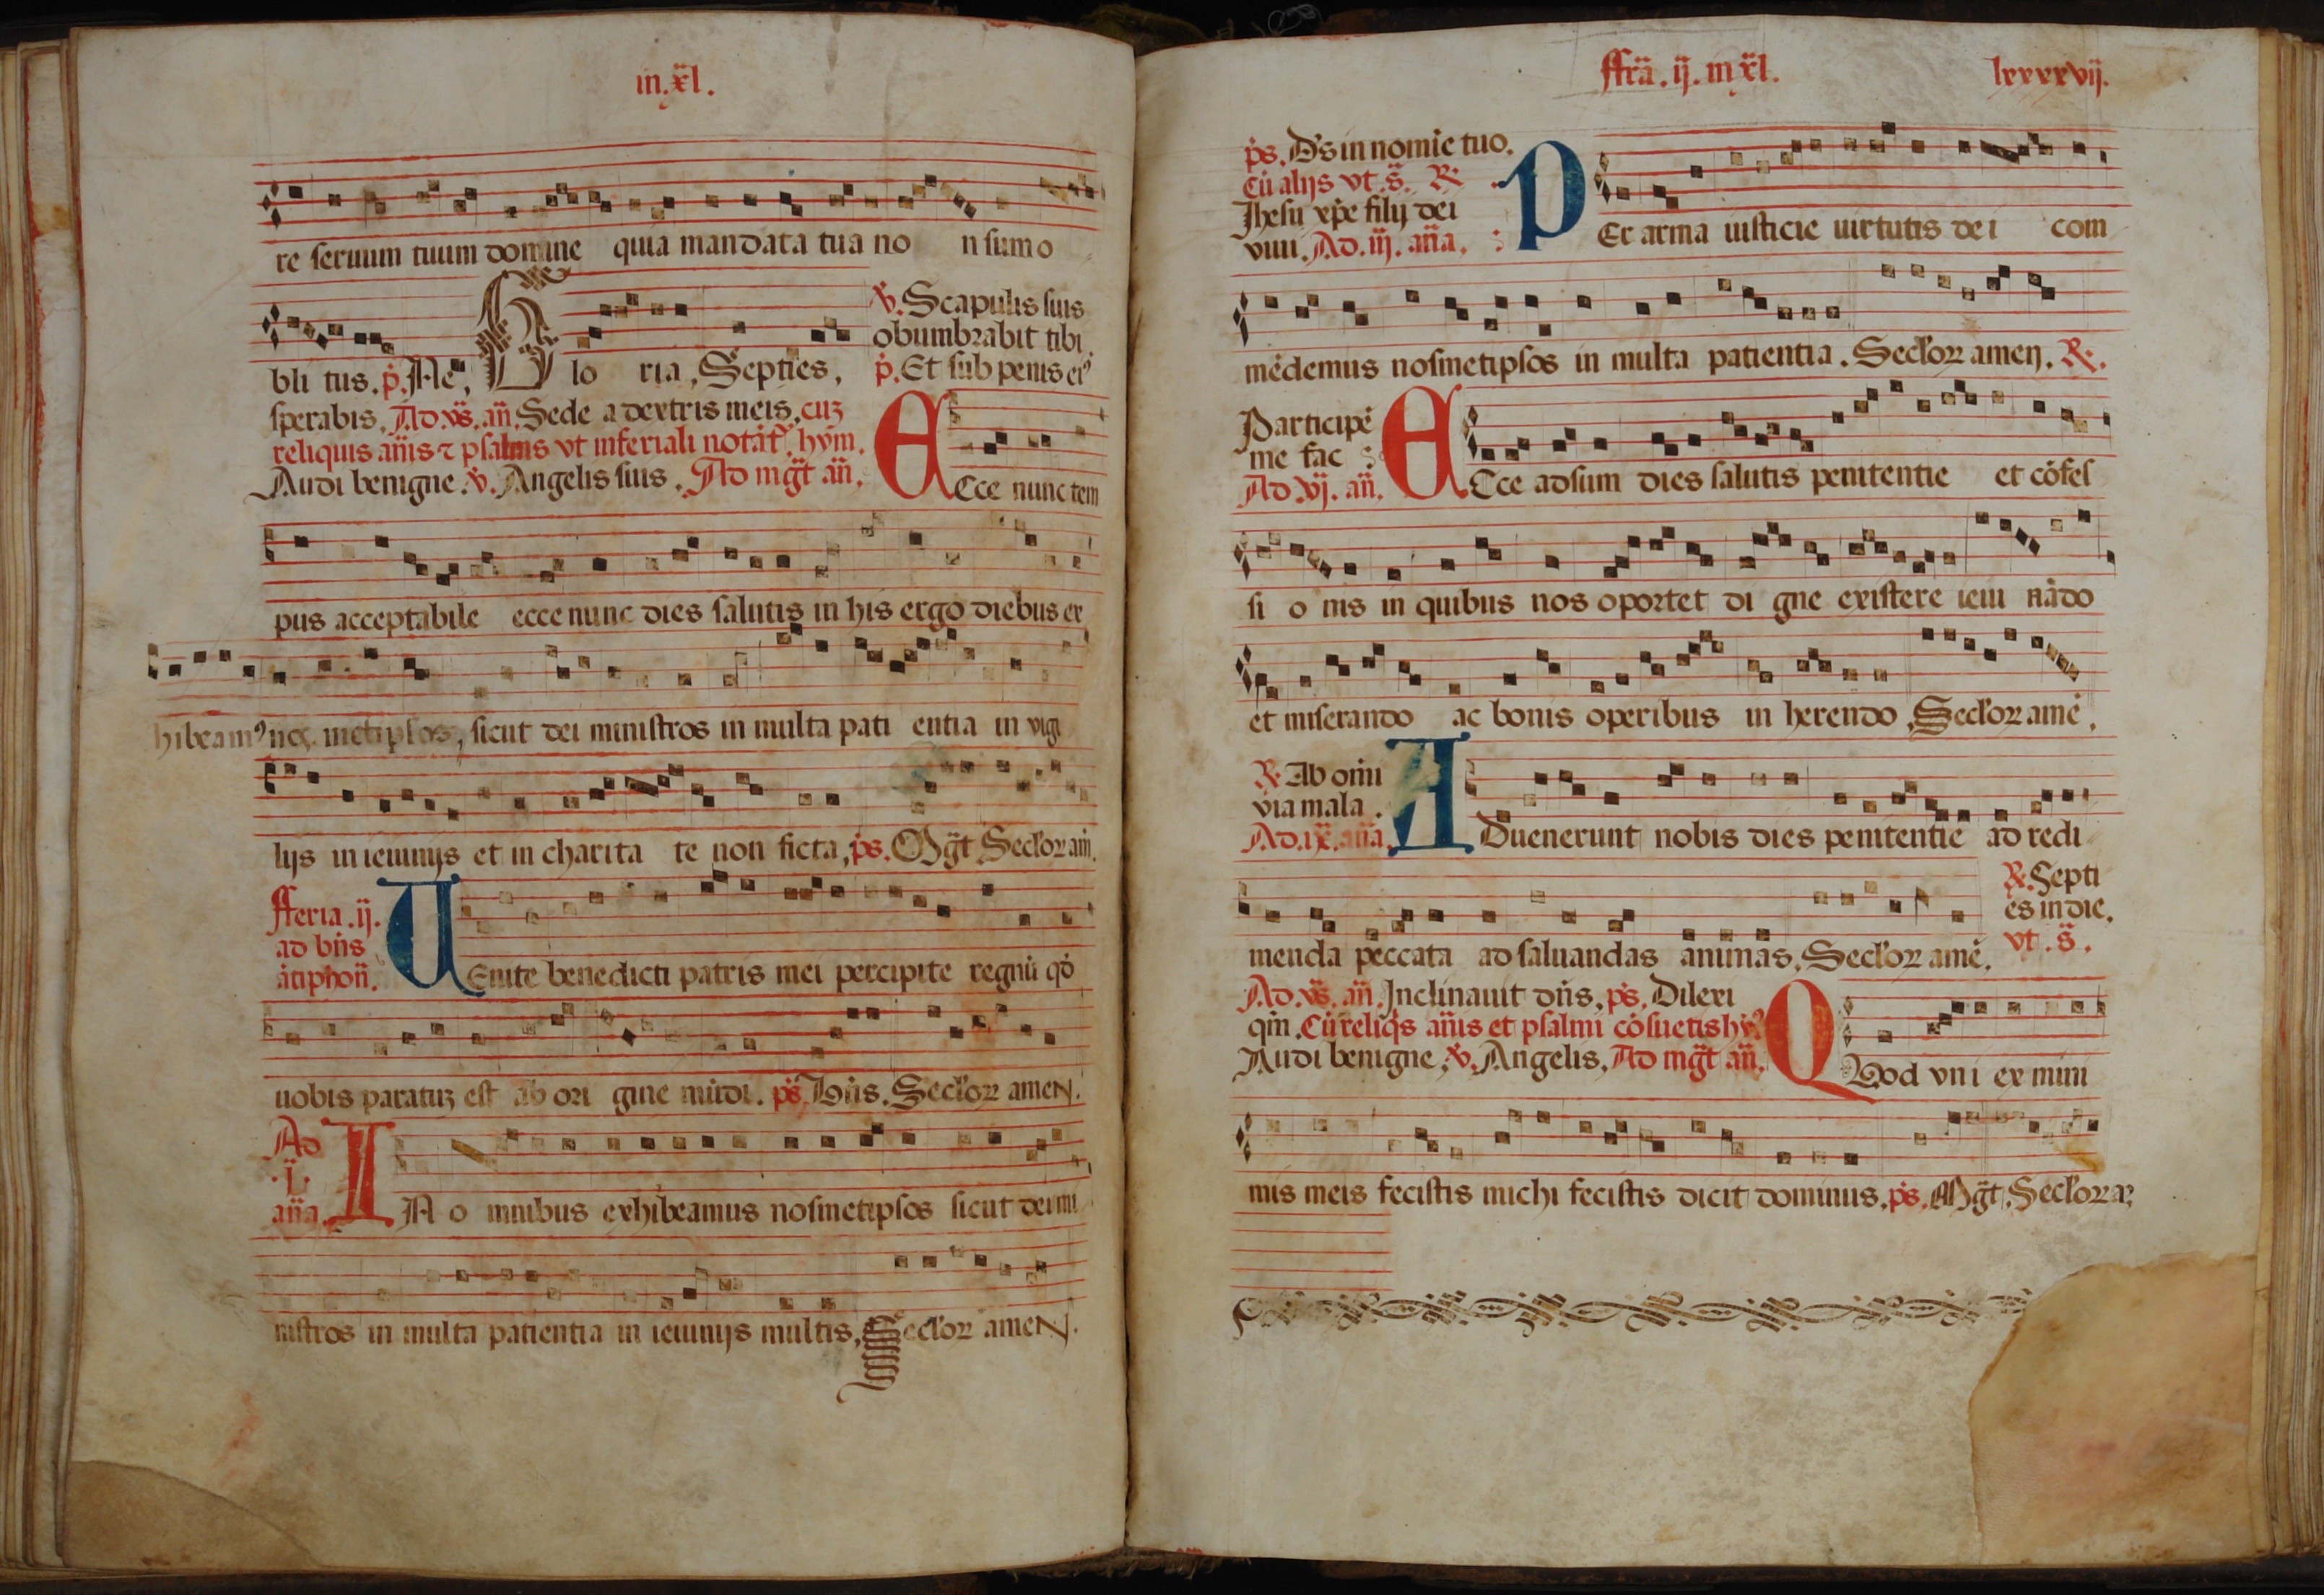 in.xl.
re seruum tuum domine quia mandata tua no n sum o
bli tus. p. Ae, Glo ria, Septies,
v. Scapulis suis
obumbrabit tibi.
p. Et sub penis ei⁹
sperabis. Ad. vs. an. Sede a dextris meis. cuz
reliquis anis ⁊ psalmis vt in feriali notat. hym.
Audi benigne. v. Angelis suis. Ad mgt an.
Ecce nunc tem
pus acceptabile ecce nunc dies salutis in his ergo diebus ex
hibeam⁹ nos metipsos, sicut dei ministros in multa pati entia in vigi
lijs in ieiunijs et in charita te non ficta, ps. Mgt Seclor am.
fferia .ij.
ad bns
atiphon.
VEnite benedicti patris mei percipite regnu qd
uobis paratuz est ab ori gine mudi. ps. Bns. Seclor ameN.
Ad
.I.
ana.
IN o mnibus exhibeamus nosmetipsos sicut dei mi
nistros in multa patientia in ieiunijs multis, Seclor ameN.
ffra. ij. in xl. lxxxxvij.
ps. Ds in nomie tuo.
Cu alijs vt. s. R.
Jhesu xpe filij dei
viui. Ad. iij. ana.
PEr arma iusticie uirtutis de i com
medemus nosmetipsos in multa patientia. Seclor amen. R.
Participe
me fac
Ad. vj. an.
ECce adsum dies salutis penitentie et cofes
si o nis in quibus nos oportet di gne existere ieiu nado
et miserando ac bonis operibus in herendo. Seclor ame.
R. Ab omi
via mala.
Ad. ix. ana.
ADuenerunt nobis dies penitentie ad redi
menda peccata ad saluandas animas. Seclor ame.
R. Septi
es in die.
vt. s.
Ad. vs. an. Inclinauit dns, ps. Dilexi
qm. Cu reliqs anis et psalmi cosuetis hy⁹
Audi benigne, v. Angelis, Ad mgt an.
QVod vni ex mini
mis meis fecistis michi fecistis dicit dominus. ps. Mgt. Seclor a